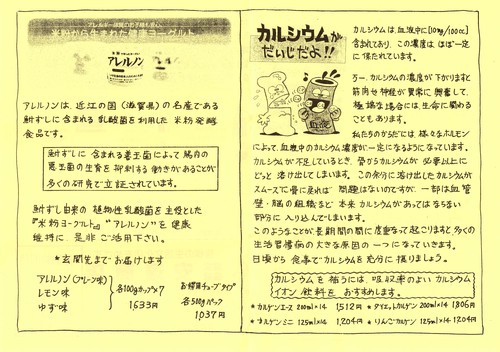 米粉から生まれた健康ヨーグルト
アレルノン
アレルノンは、近江の国(滋賀県)の名産である
鮒ずしに含まれる乳酸菌を利用した 米粉発酵
食品です。
鮒ずしに含まれる善玉菌によって腸内の
悪玉菌の生育を抑制する働きがあることが
多くの研究で立証されています。
鮒ずし由来の植物性乳酸菌を主役とした
『米粉ヨーグルト』"アレルノン"を健康
維持に是非ご活用下さい。
*玄関先までお届けします
アレルノン(プレーン味)
レモン味
ゆず味
各100gカップ×7
1633円
お得用チューブタイプ
各500gパック
1037円
カルシウムが
だいじだよ!!
カルシウムは、血液中に(10mg/100cc)
含まれており、この濃度は ほぼ一定
に保たれています。
万一、カルシウムの濃度が下がりますと
筋肉や神経が異常に興奮して、
極端な場合には、生命に関わる
こともあります。
私たちのからだには、様々なホルモン
によって、血液中のカルシウム濃度が一定になるようになっています。
カルシウムが不足しているとき、骨からカルシウムが 必要以上に
どっと 溶け出してしまいます。この余分に溶け出したカルシウムが
スムーズに骨に戻れば 問題はないのですが、一部は血管
壁・脳の組織など 本来カルシウムがあってはならない
部分に 入り込んでしまいます。
このようなことが長期間の間に度重なって起こりますと多くの
生活習慣病の大きな原因の一つになっていきます。
日頃から 食事でカルシウムを充分に摂りましょう。
カルシウムを補うには、吸収率のよいカルシウム
イオン飲料を おすすめします。
*カルゲンエース 200ml×14 1512円
*ダイエットカルゲン 200ml×14 1806円
*カルゲンミニ 125ml×14 1204円
*りんごカルゲン 125ml×14 1204円